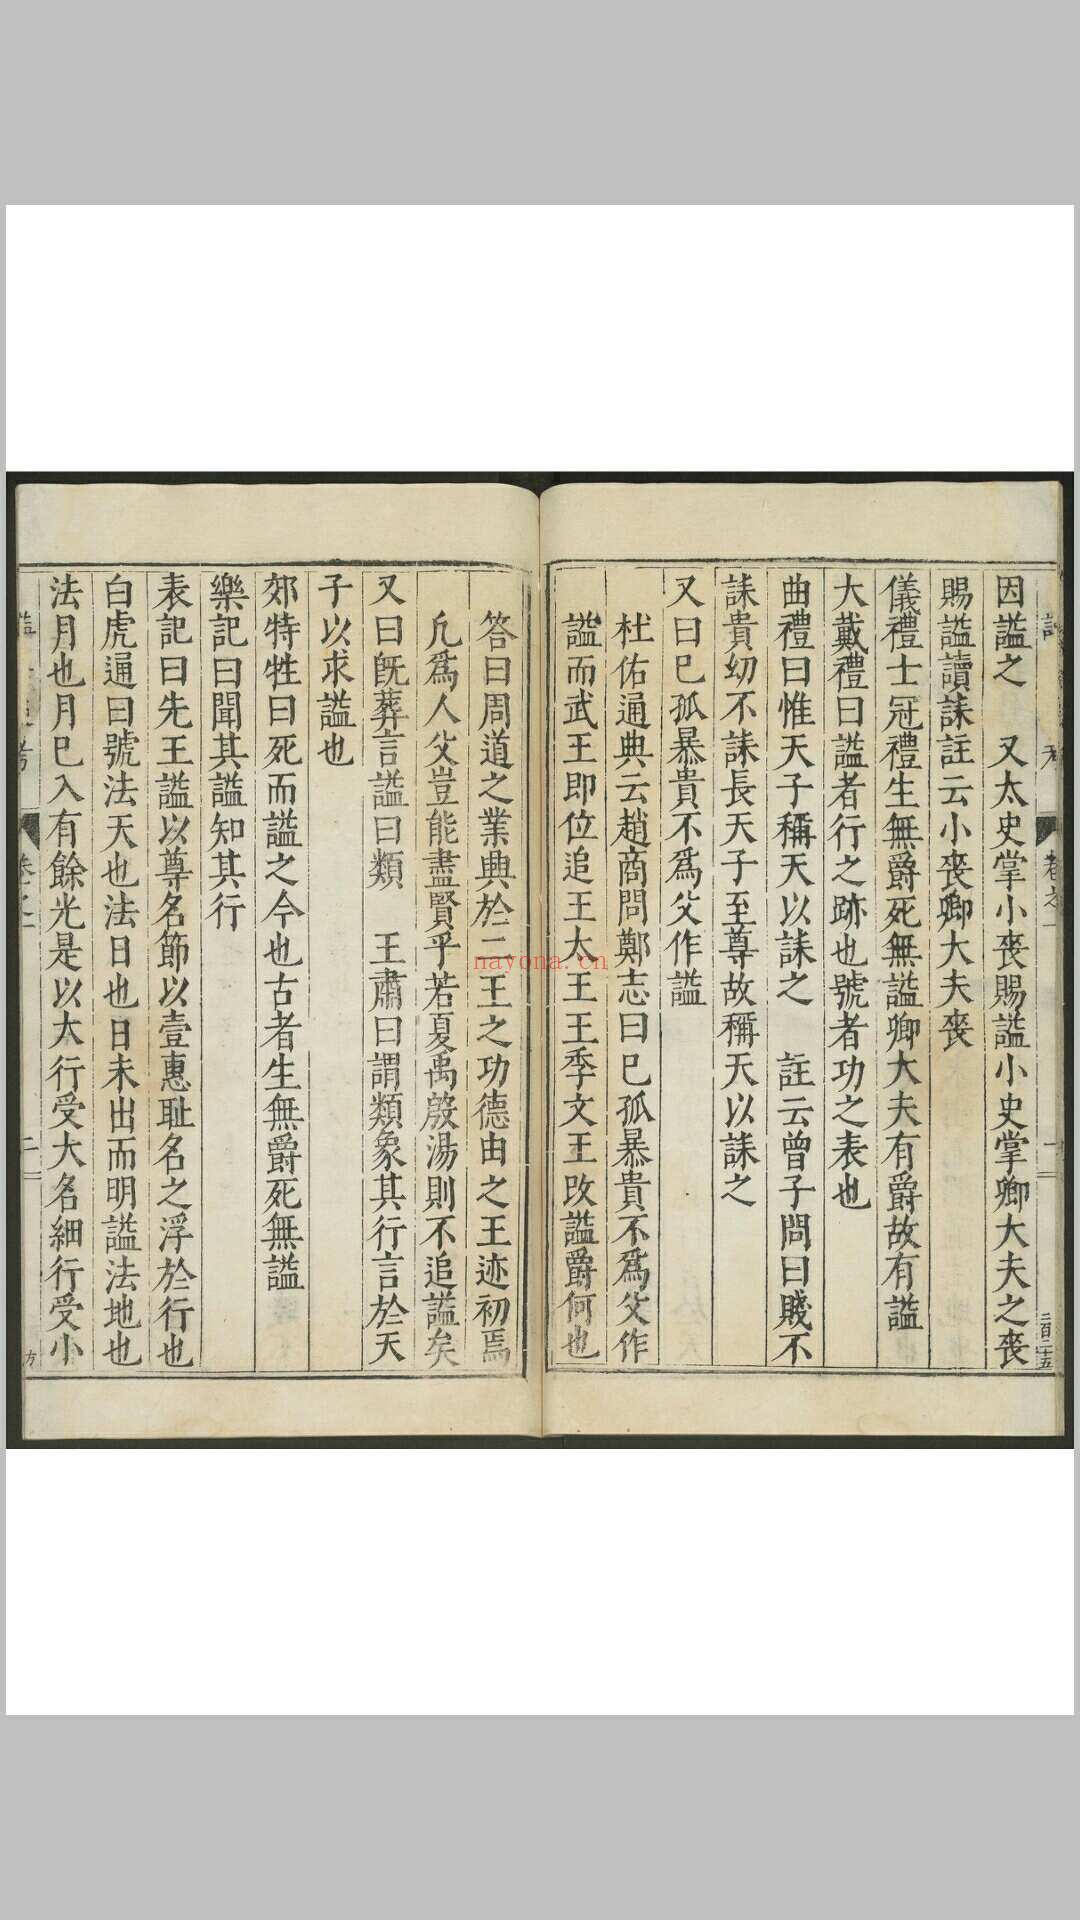 因謚之　又太史掌小喪賜謚小史掌卿大夫之喪
賜謚讀誄註云小喪卿大夫喪
儀禮士冠禮生無爵死無謚卿大夫有爵故有謚
大戴禮曰謚者行之跡也號者功之表也
曲禮曰惟天子稱天以誄之　註云曾子問曰賤不
誄貴幼不誄長天子至尊故稱天以誄之
又曰巳孤暴貴不爲父作謚
杜佑通典云趙商問鄭志曰巳孤暴貴不爲父作
謚而武王即位追王大王王季文王改謚爵何也
答曰周道之業興於二王之功德由之王迹初焉
凡爲人父豈能盡賢乎若夏禹殷湯則不追謚矣
又曰旣葬言謚曰類　王肅曰謂類象其行言於天
子以求謚也
郊特牲曰死而謚之今也古者生無爵死無謚
樂記曰聞其謚知其行
表記曰先王謚以尊名節以壹惠耻名之浮於行也
白虎通曰號法天也法日也日未出而明謚法地也
法月也月巳入有餘光是以大行受大名細行受小
卷之一
二百二五
nayona.cn